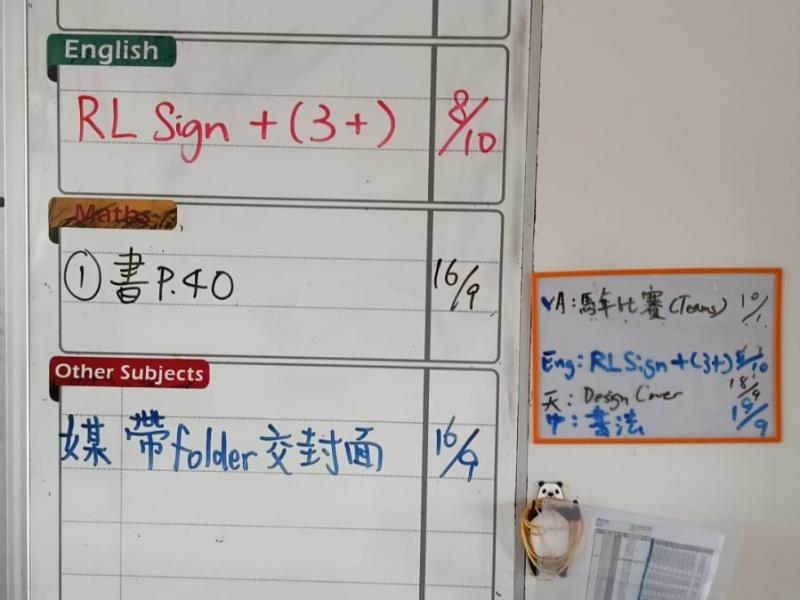 English
RL Sign + (3+) 8/10
Maths
① 書 P.40 16/9
Other Subjects
媒 帶folder交封面 16/9
VA: 比賽 (Teams)
Eng: RL Sign + (3+) 8/10
天: Design Cover 18/9
中: 書法 19/9